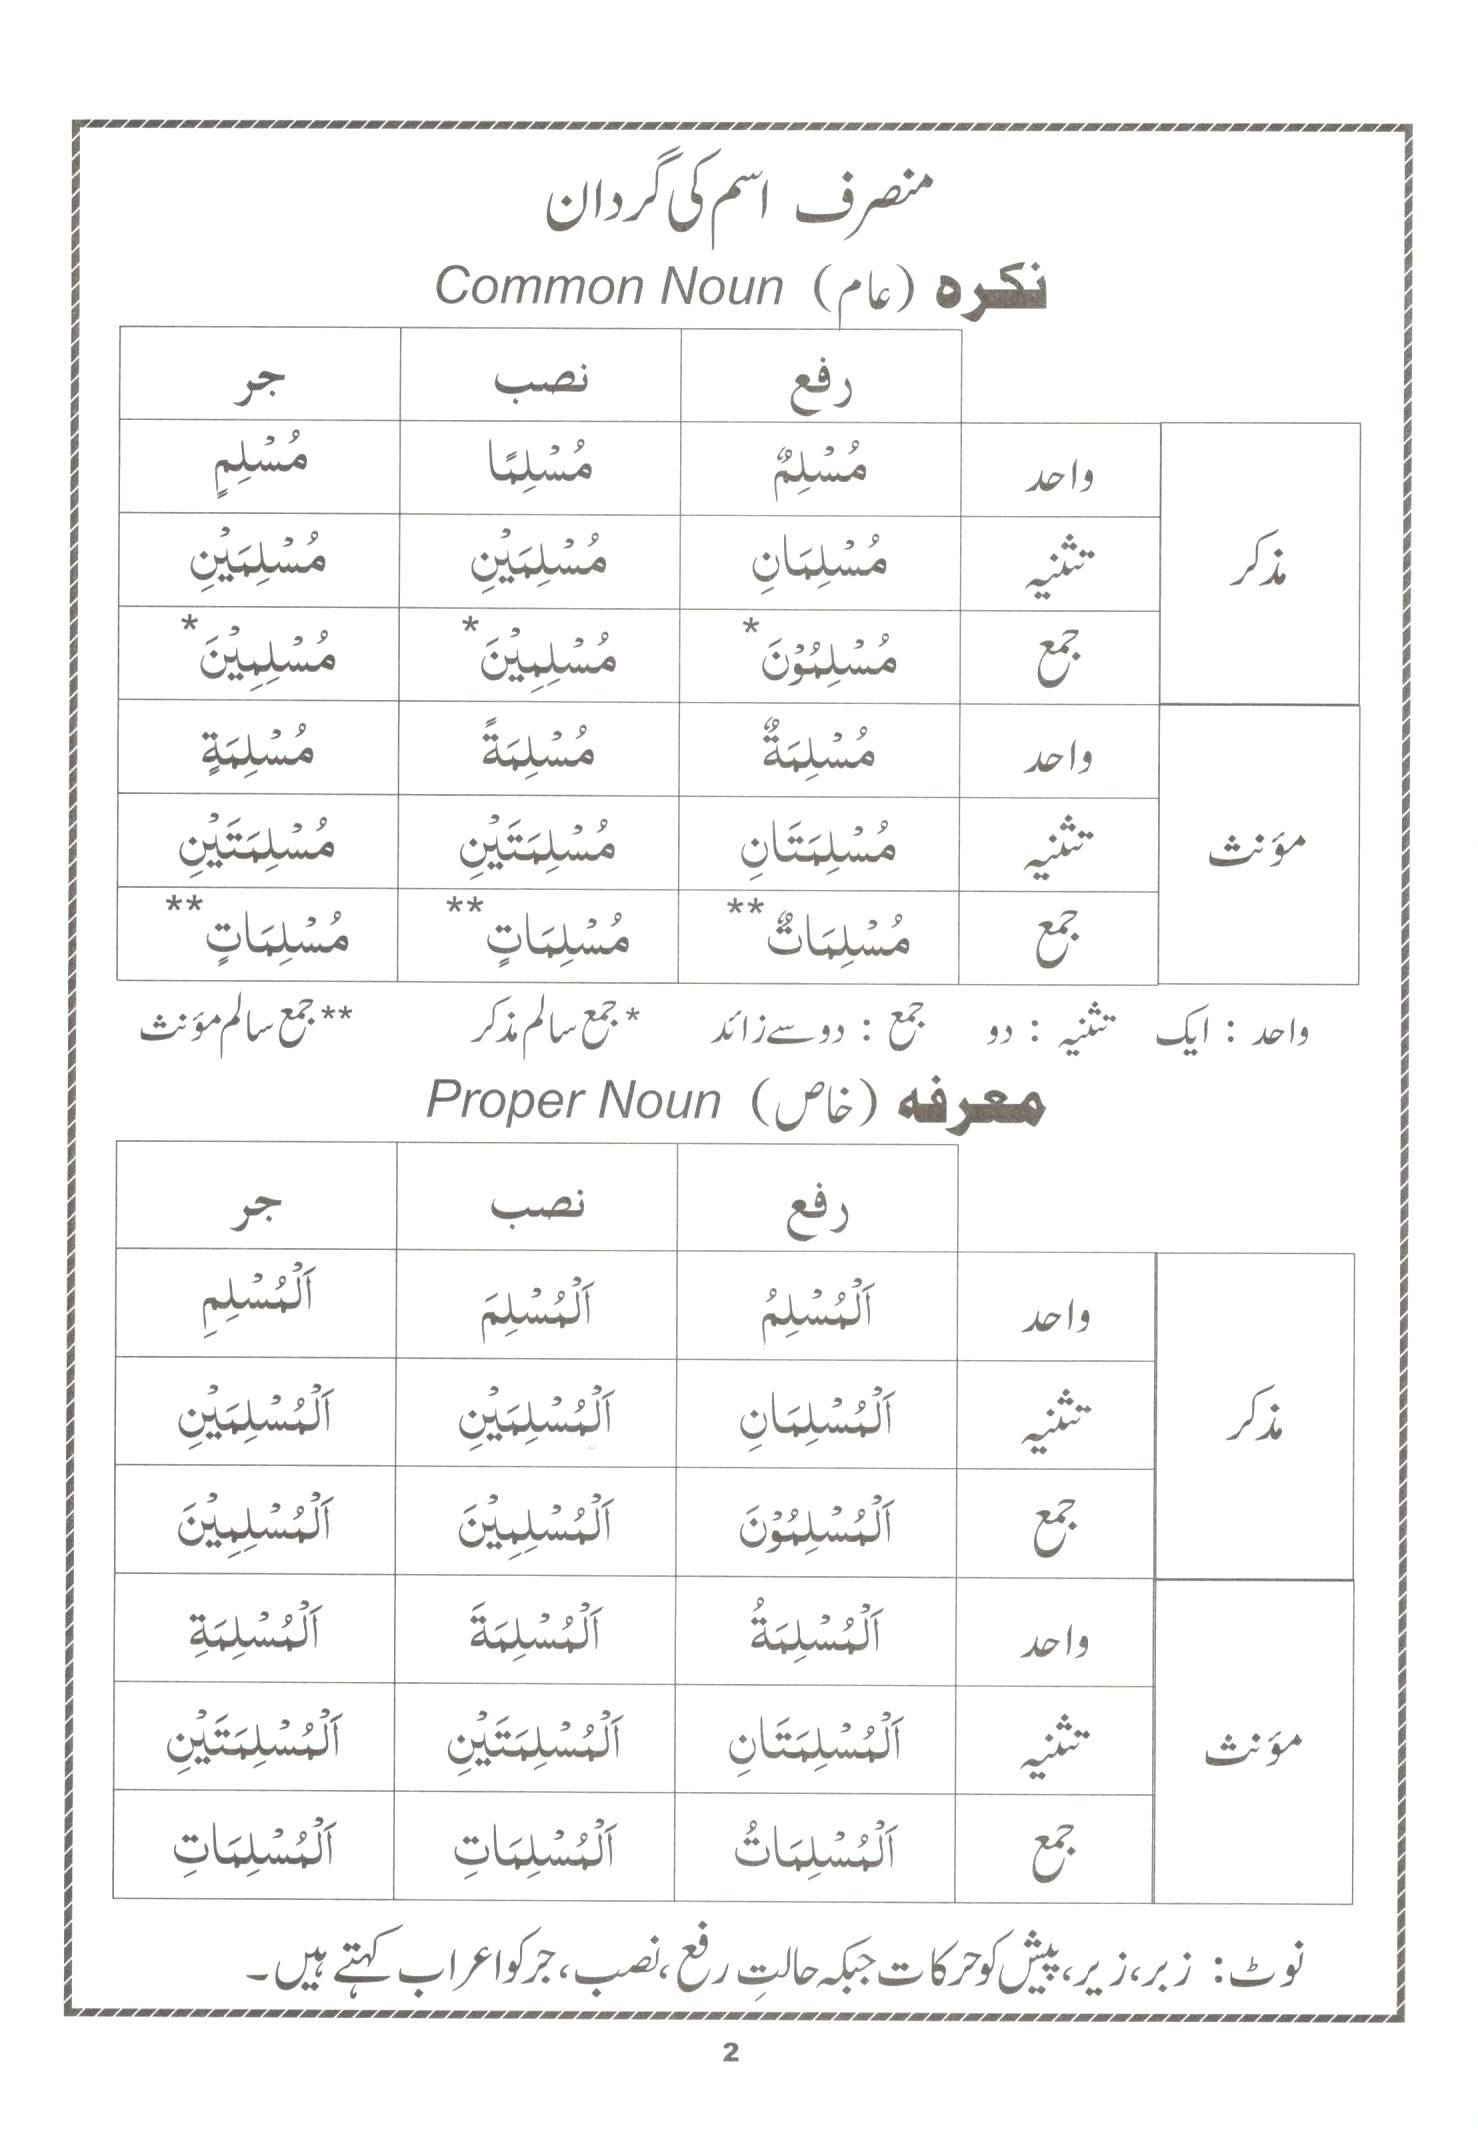 منصرف اسم کی گردان
نکره (عام) Common Noun
رفع نصب جر
مذکر واحد مُسْلِمٌ مُسْلِمًا مُسْلِمٍ
تثنیہ مُسْلِمَانِ مُسْلِمَيْنِ مُسْلِمَيْنِ
جمع مُسْلِمُوْنَ* مُسْلِمِيْنَ* مُسْلِمِيْنَ*
مؤنث واحد مُسْلِمَةٌ مُسْلِمَةً مُسْلِمَةٍ
تثنیہ مُسْلِمَتَانِ مُسْلِمَتَيْنِ مُسْلِمَتَيْنِ
جمع مُسْلِمَاتٌ** مُسْلِمَاتٍ** مُسْلِمَاتٍ**
واحد : ایک تثنیہ : دو جمع : دو سے زائد *جمع سالم مذکر **جمع سالم مؤنث
معرفه (خاص) Proper Noun
رفع نصب جر
مذکر واحد اَلْمُسْلِمُ اَلْمُسْلِمَ اَلْمُسْلِمِ
تثنیہ اَلْمُسْلِمَانِ اَلْمُسْلِمَيْنِ اَلْمُسْلِمَيْنِ
جمع اَلْمُسْلِمُوْنَ اَلْمُسْلِمِيْنَ اَلْمُسْلِمِيْنَ
مؤنث واحد اَلْمُسْلِمَةُ اَلْمُسْلِمَةَ اَلْمُسْلِمَةِ
تثنیہ اَلْمُسْلِمَتَانِ اَلْمُسْلِمَتَيْنِ اَلْمُسْلِمَتَيْنِ
جمع اَلْمُسْلِمَاتُ اَلْمُسْلِمَاتِ اَلْمُسْلِمَاتِ
نوٹ: زبر، زیر، پیش کو حرکات جبکہ حالتِ رفع، نصب، جر کو اعراب کہتے ہیں۔
2